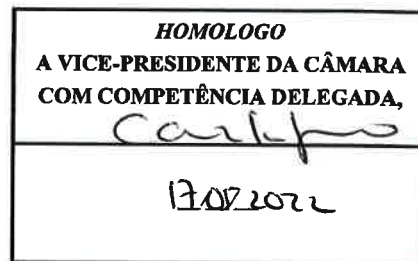 HOMOLOGO
A VICE-PRESIDENTE DA CÂMARA
COM COMPETÊNCIA DELEGADA,